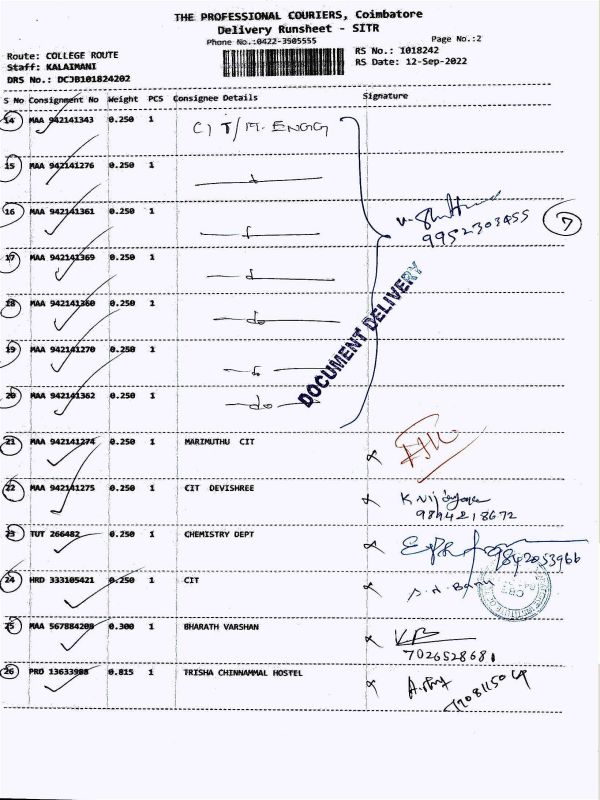 THE PROFESSIONAL COURIERS, Coimbatore
Delivery Runsheet - SITR
Phone No.:0422-3505555 Page No.:2
Route: COLLEGE ROUTE RS No.: 1018242
Staff: KALAIMANI RS Date: 12-Sep-2022
DRS No.: DCJB101824202
S No Consignment No Weight PCS Consignee Details Signature
14 MAA 942141343 0.250 1 CIT/M.ENGG
15 MAA 942141276 0.250 1
16 MAA 942141361 0.250 1
9952303455 7
17 MAA 942141369 0.250 1
18 MAA 942141360 0.250 1 do
DOCUMENT DELIVERY
19 MAA 942141270 0.250 1
20 MAA 942141362 0.250 1 do
21 MAA 942141274 0.250 1 MARIMUTHU CIT
22 MAA 942141275 0.250 1 CIT DEVISHREE
9894218672
23 TUT 266482 0.250 1 CHEMISTRY DEPT
9842053966
24 HRD 333105421 0.250 1 CIT
25 MAA 567884208 0.300 1 BHARATH VARSHAN
7026528681
26 PRO 13633908 0.815 1 TRISHA CHINNAMMAL HOSTEL